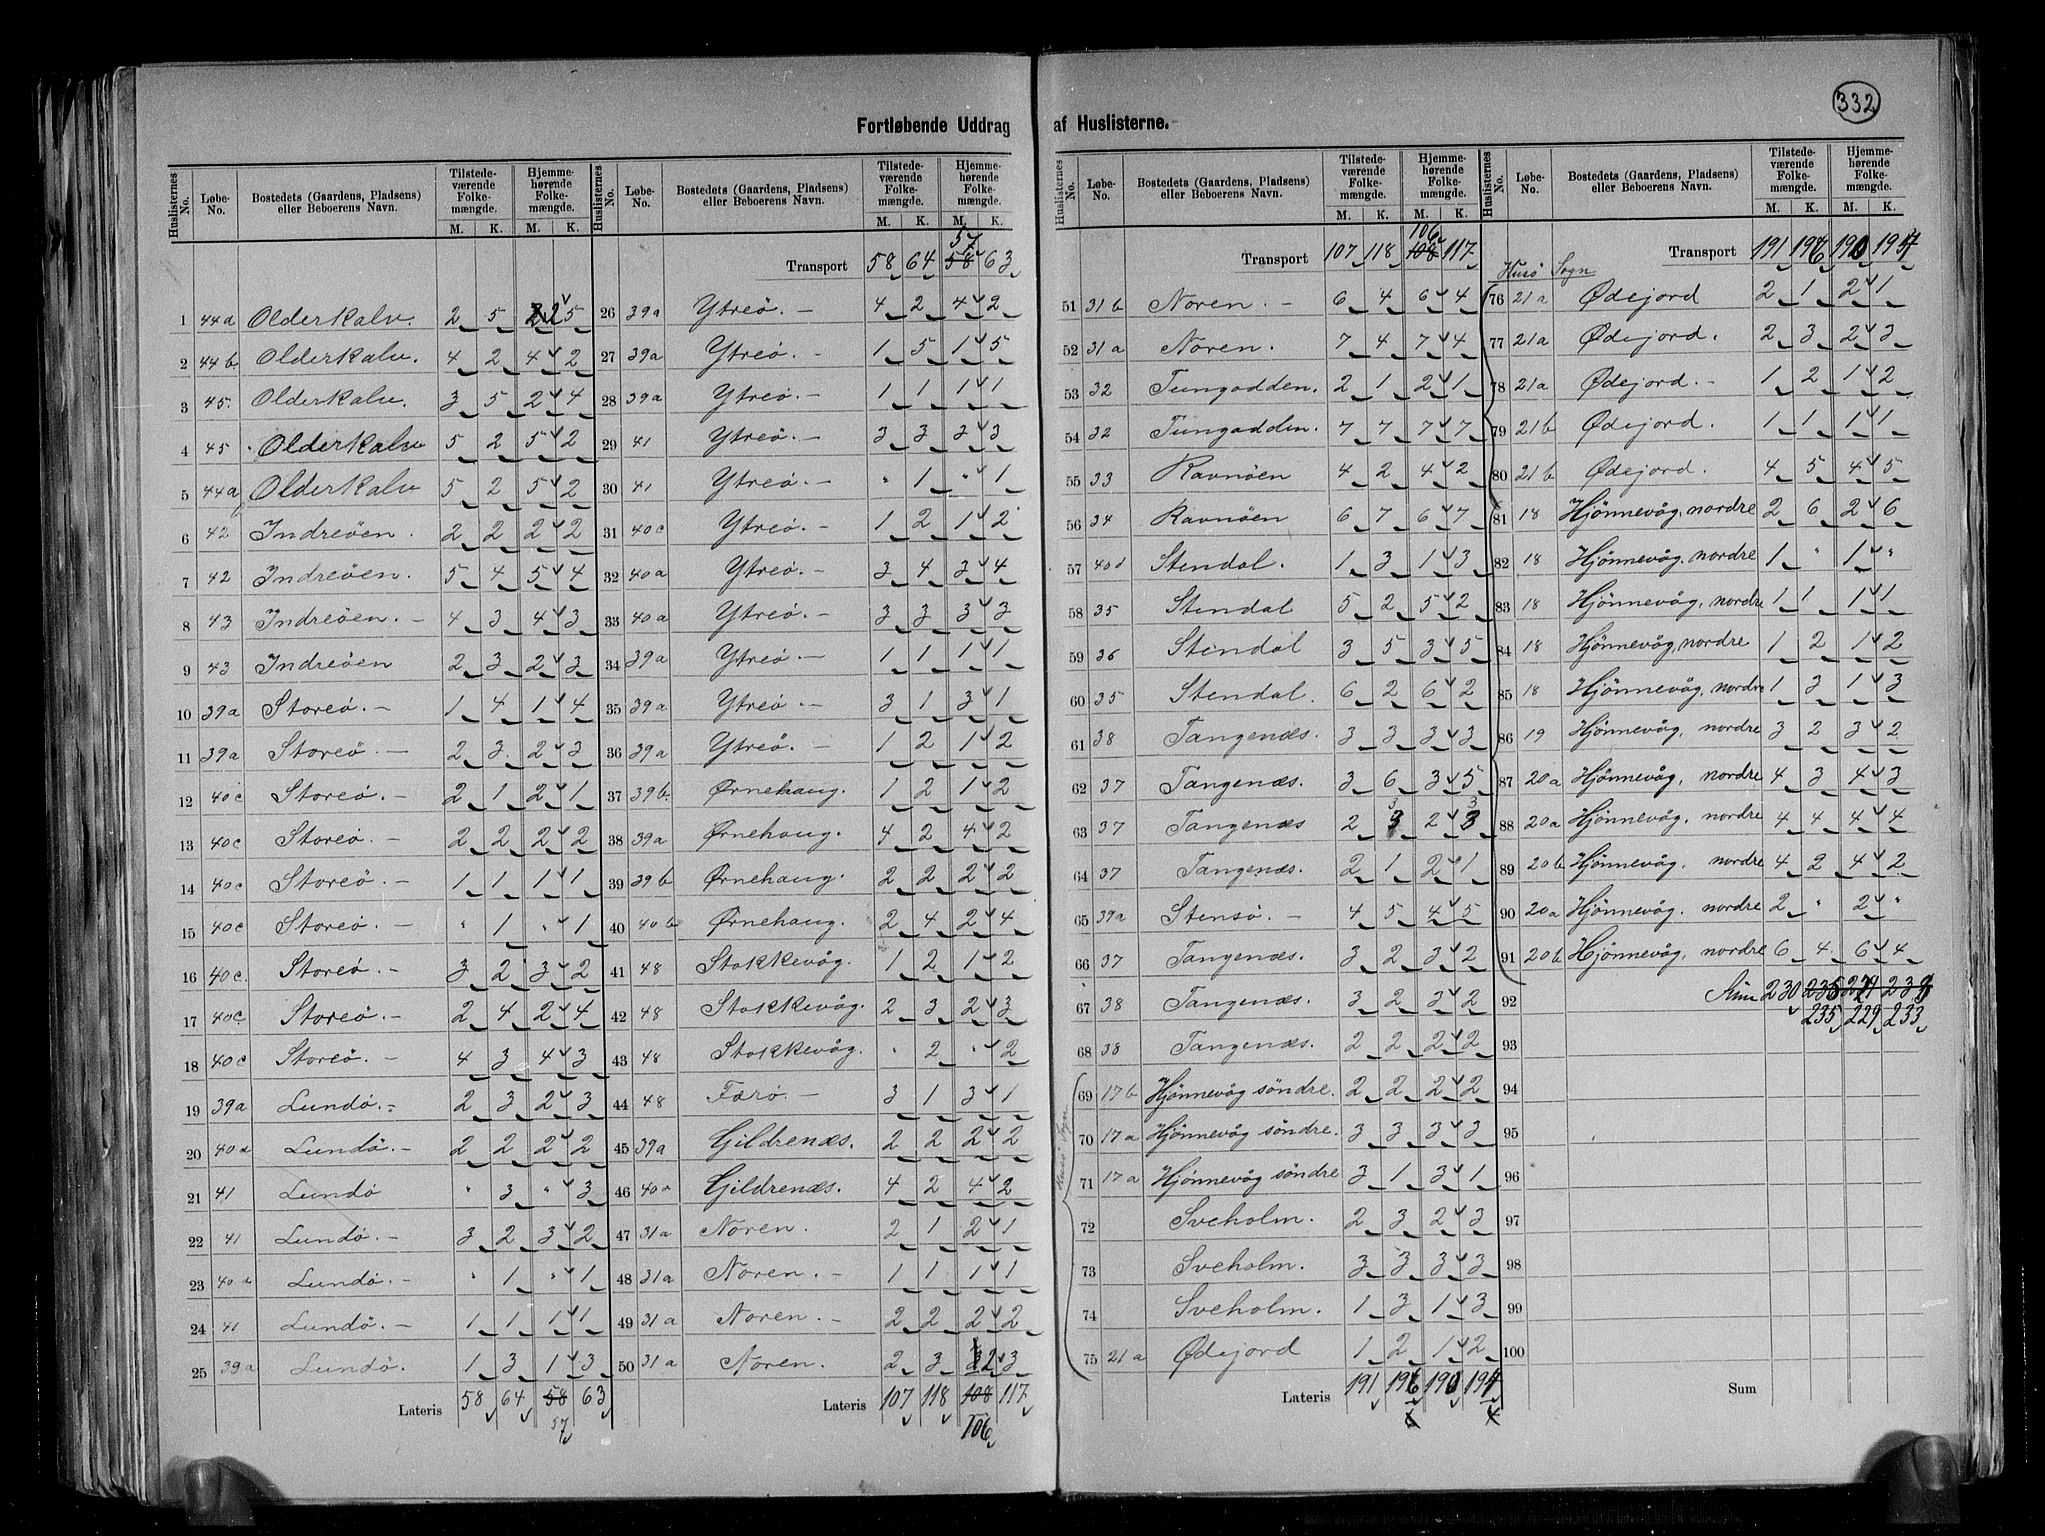 332
Fortløbende Uddrag af Huslisterne.
Huslisternes No. Løbe-No. Bostedets (Gaardens, Pladsens) eller Beboerens Navn. Tilstedeværende Folkemængde. M. K. Hjemmehørende Folkemængde. M. K.
1 44a Olderkalv. 2 5 2 5
2 44b Olderkalv. 4 2 4 2
3 45. Olderkalv. 3 5 2 4
4 45 Olderkalv 5 2 5 2
5 44a Olderkalv 5 2 5 2
6 42 Indreöen. 2 2 2 2
7 42 Indreöen. 5 4 5 4
8 43 Indreöen. - 4 3 4 3
9 43 Indreöen 2 3 2 3
10 39a Storeö. - 1 4 1 4
11 39a Storeö. - 2 3 2 3
12 40c Storeö. - 2 1 2 1
13 40c Storeö. - 2 2 2 2
14 40c Storeö. - 1 1 1 1
15 40c Storeö. - " 1 " 1
16 40c. Storeö. - 3 2 3 2
17 40c Storeö. - 2 4 2 4
18 40c Storeö. - 4 3 4 3
19 39a Lundö. - 2 3 2 3
20 40a Lundö. - 2 2 2 2
21 41 Lundö " 3 " 3
22 41 Lundö. - 3 2 3 2
23 40a Lundö. - " 1 " 1
24 41 Lundö. - 1 1 1 1
25 39a Lundö. 1 3 1 3
Lateris 58 64 58 63
57
Huslisternes No. Løbe-No. Bostedets (Gaardens, Pladsens) eller Beboerens Navn. Tilstedeværende Folkemængde. M. K. Hjemmehørende Folkemængde. M. K.
57
Transport 58 64 58 63
26 39a Ytreö. - 4 2 4 2
27 39a Ytreö. - 1 5 1 5
28 39a Ytreö. - 1 1 1 1
29 41 Ytreö. - 3 3 3 3
30 41 Ytreö. - " 1 " 1
31 40c Ytreö. - 1 2 1 2
32 40a Ytreö. - 3 4 3 4
33 40a Ytreö. - 3 3 3 3
34 39a Ytreö. - 1 1 1 1
35 39a Ytreö. - 3 1 3 1
36 39a Ytreö. - 1 2 1 2
37 39b. Ørnehaug. 1 2 1 2
38 39a Ørnehaug. 4 2 4 2
39 39b Ørnehaug. 2 2 2 2
40 40b Ørnehaug. 2 4 2 4
41 48 Stokkevåg. 1 2 1 2
42 48 Stokkevåg. 2 3 2 3
43 48 Stokkevåg. " 2 " 2
44 48 Færö. - 3 1 3 1
45 39a Gildrenæs. 2 2 2 2
46 40a Gildrenæs. 4 2 4 2
47 31a Noren. 2 1 2 1
48 31a Noren. - 1 1 1 1
49 31a Noren. - 2 2 2 2
50 31a Noren. 2 3 2 3
Lateris 107 118 108 117
106
Huslisternes No. Løbe-No. Bostedets (Gaardens, Pladsens) eller Beboerens Navn. Tilstedeværende Folkemængde. M. K. Hjemmehørende Folkemængde. M. K.
106
Transport 107 118 108 117
51 31b Noren. - 6 4 6 4
52 31a Noren. 7 4 7 4
53 32 Tungodden. 2 1 2 1
54 32 Tungodden. 7 7 7 7
55 33 Ravnöen 4 2 4 2
56 34 Ravnöen 6 7 6 7
57 40d Stendal. 1 3 1 3
58 35 Stendal 5 2 5 2
59 36 Stendal 3 5 3 5
60 35 Stendal. 6 2 6 2
61 38 Tangenæs. 3 3 3 3
62 37 Tangenæs. 3 6 3 5
63 37 Tangenæs 2 3 2 3
64 37 Tangenæs. 2 1 2 1
65 39a Stensö. - 4 5 4 5
66 37 Tangenæs. 3 2 3 2
67 38 Tangenæs. 3 2 3 2
68 38 Tangenæs. 2 2 2 2
Husö Sogn
69 17b Hjönnevåg söndre. 2 2 2 2
70 17a Hjönnevåg söndre. 3 3 3 3
71 17a Hjönnevåg söndre 3 1 3 1
72 Sveholm. 2 3 2 3
73 Sveholm. 3 3 3 3
74 Sveholm. 1 3 1 3
75 21a Ødejord 1 2 1 2
Lateris 191 196 190 194
Huslisternes No. Løbe-No. Bostedets (Gaardens, Pladsens) eller Beboerens Navn. Tilstedeværende Folkemængde. M. K. Hjemmehørende Folkemængde. M. K.
Transport 191 196 190 194
Husö Sogn
76 21a Ødejord 2 1 2 1
77 21a Ødejord. 2 3 2 3
78 21a Ødejord. - 1 2 1 2
79 21b Ødejord. 1 1 1 1
80 21b Ødejord. 4 5 4 5
81 18 Hjönnevåg, nordre 2 6 2 6
82 18 Hjönnevåg, nordre 1 " 1 "
83 18 Hjönnevåg, nordre 1 1 1 1
84 18 Hjönnevåg, nordre 1 2 1 2
85 18 Hjönnevåg, nordre 1 3 1 3
86 19 Hjönnevåg, nordre 3 2 3 2
87 20a Hjönnevåg, nordre 4 3 4 3
88 20a Hjönnevåg, nordre 4 4 4 4
89 20b Hjönnevåg, nordre 4 2 4 2
90 20a Hjönnevåg, nordre 2 " 2 "
91 20b Hjönnevåg, nordre 6 4 6 4
92 Sum 230
235 229 233
93
94
95
96
97
98
99
100
Sum